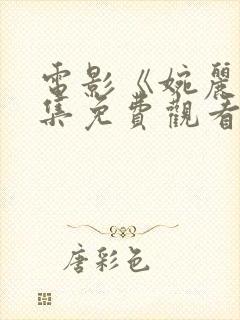 電影《婉麗
集免費觀看
唐彩色